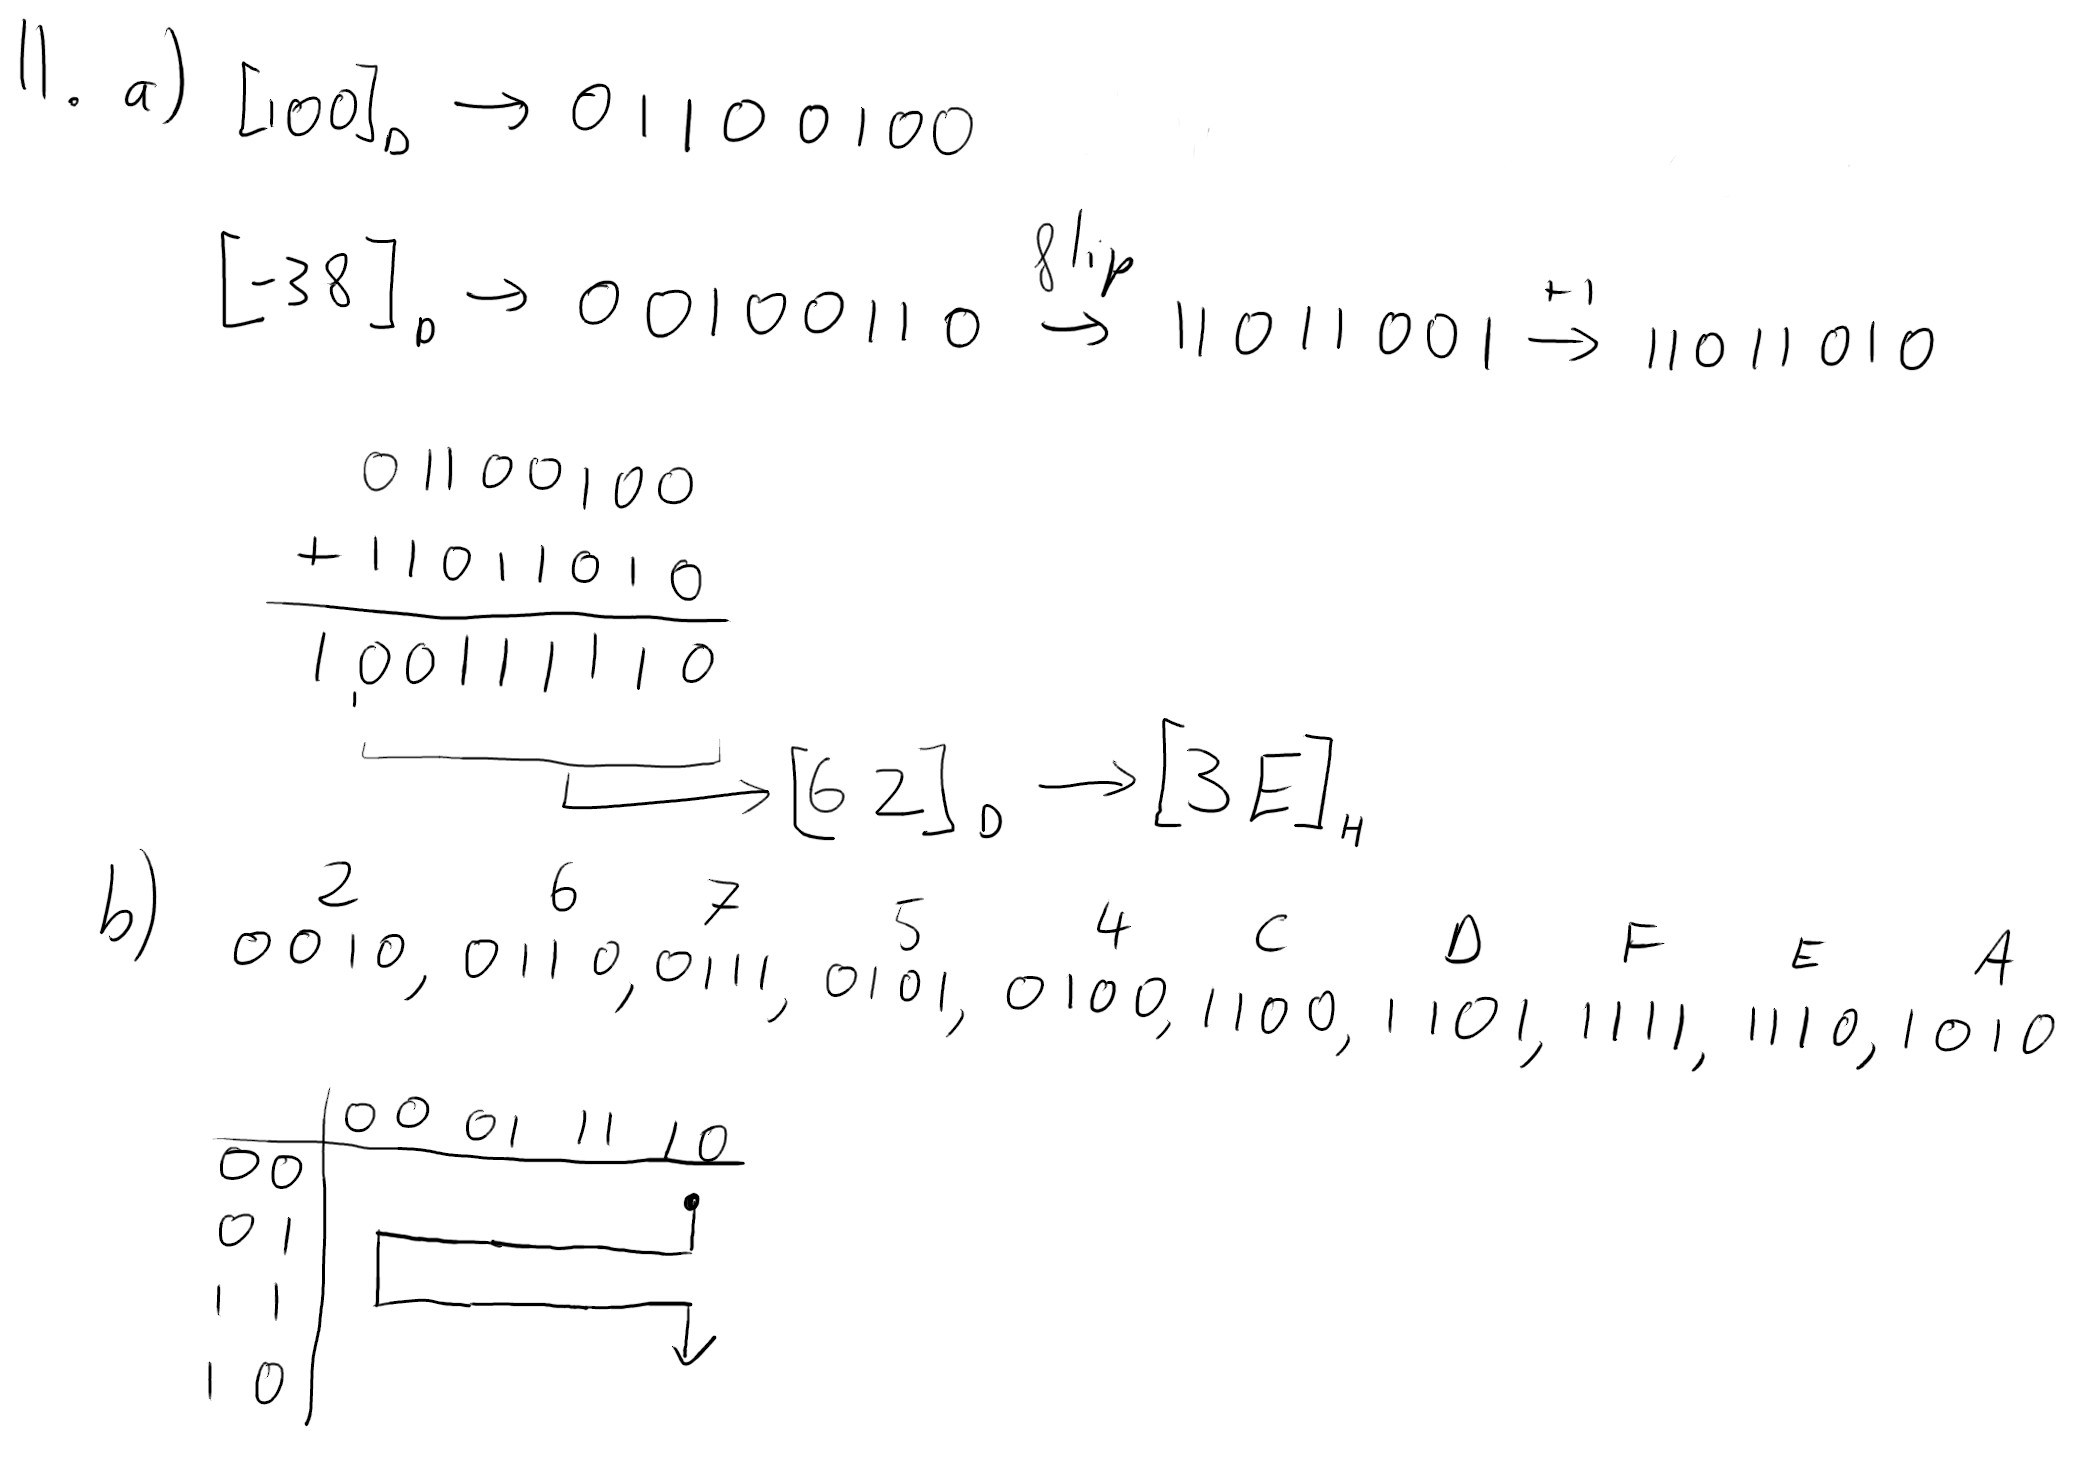 11. a) [100]D → 01100100
flip +1
[-38]D → 00100110 → 11011001 → 11011010
01100100
+11011010
100111110
[62]D → [3E]H
b) 2 6 7 5 4 C D F E A
0010, 0110, 0111, 0101, 0100, 1100, 1101, 1111, 1110, 1010
00 01 11 10
00
01
11
10